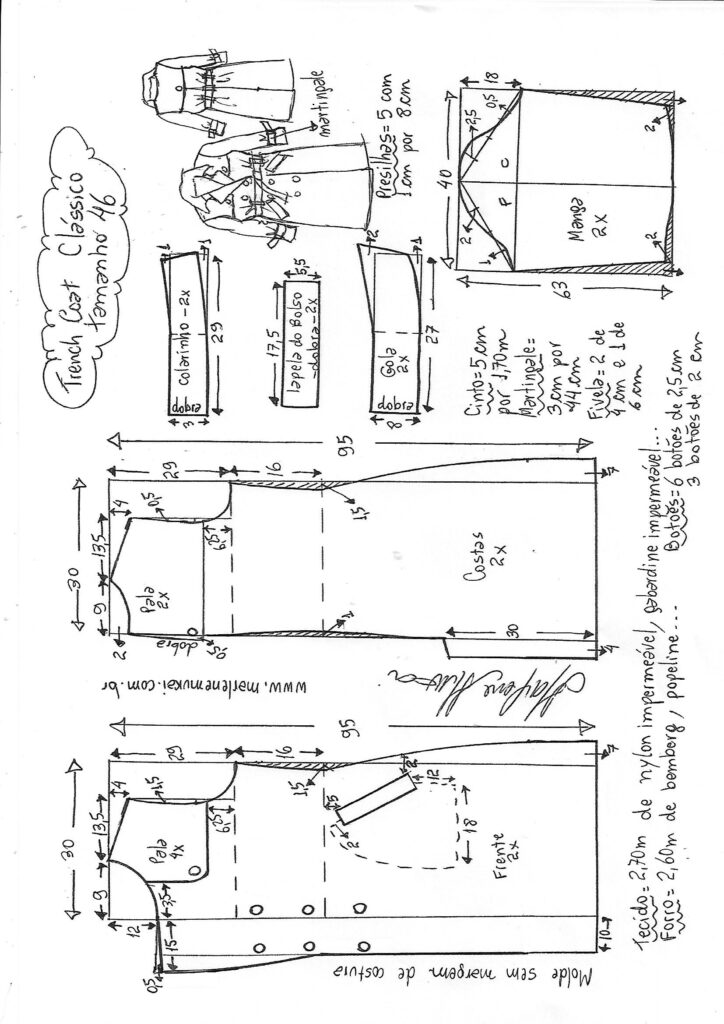 Trench Coat Clássico
tamanho 46
martingale
Presilhas = 5 com
1 cm por
8 cm
18
40
63
0,5
2,5
2
1
F
C
Manga
2x
2
2
1
1
Colarinho - 2x
dobra
3
29
5,5
17,5
lapela do Bolso
- dobra - 2x
2
1
Gola
2x
dobra
8
27
Cinto = 5 cm
por 1,70m
Martingale =
3 cm por
44 cm
Fivela = 2 de
4 cm e 1 de
6 cm
95
29
16
30
13,5
9
4
0,5
6,25
Pala
2x
2
dobra
0,5
1,5
1
Costas
2x
30
4
7
www.marlenemukai.com.br
95
29
16
30
13,5
9
4
1,5
6,25
Pala
4x
12
3,5
15
0,5
1,5
2
5
12
2
18
Frente
2x
7
10
Molde sem margem de costura
Tecido = 2,70m de nylon impermeável, gabardine impermeável...
Forro = 2,60m de bemberg, popeline...
Botões = 6 botões de 2,5 cm
3 botões de 2 cm